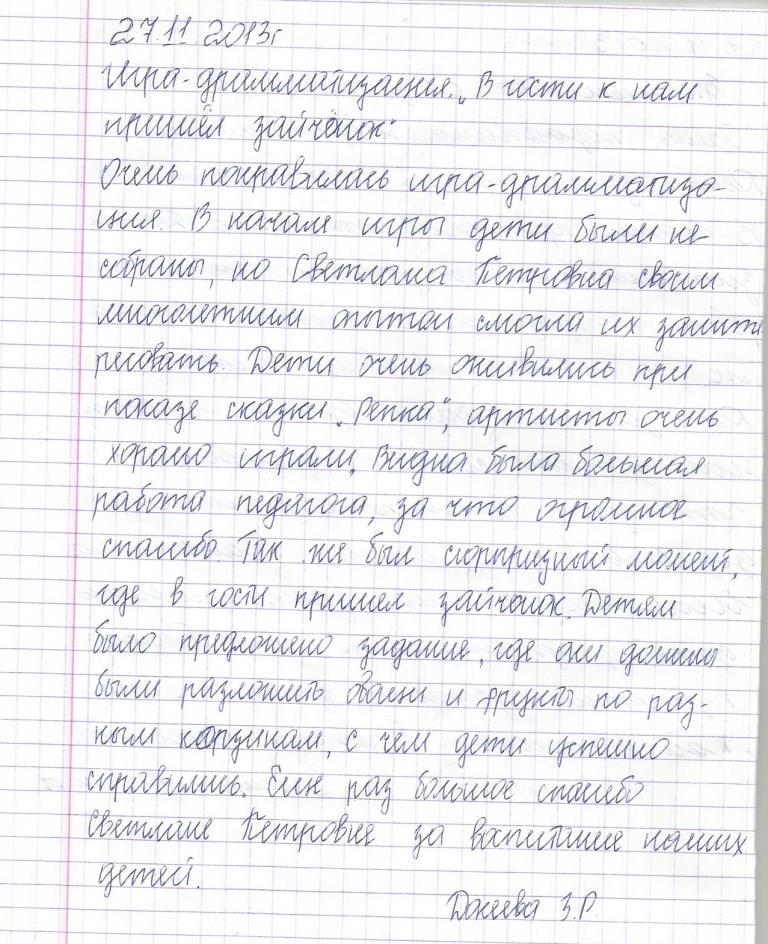 27.11 2013г
Игра-драмматизация „В гости к нам
пришёл зайчонок"
Очень понравилась игра-драмматиза-
ция. В начале игры дети были не
собраны, но Светлана Петровна своим
многолетним опытом смогла их заинте
ресовать. Дети очень оживились при
показе сказки „Репка", артисты очень
хорошо играли. Видна была большая
работа педагога, за что огромное
спасибо. Так же был сюрпризный момент,
где в гости пришел зайчонок. Детям
было предложено задание, где они должны
были разложить овощи и фрукты по раз-
ным корзинам, с чем дети успешно
справились. Еще раз большое спасибо
Светлане Петровне за воспитание наших
детей.
З.Р.